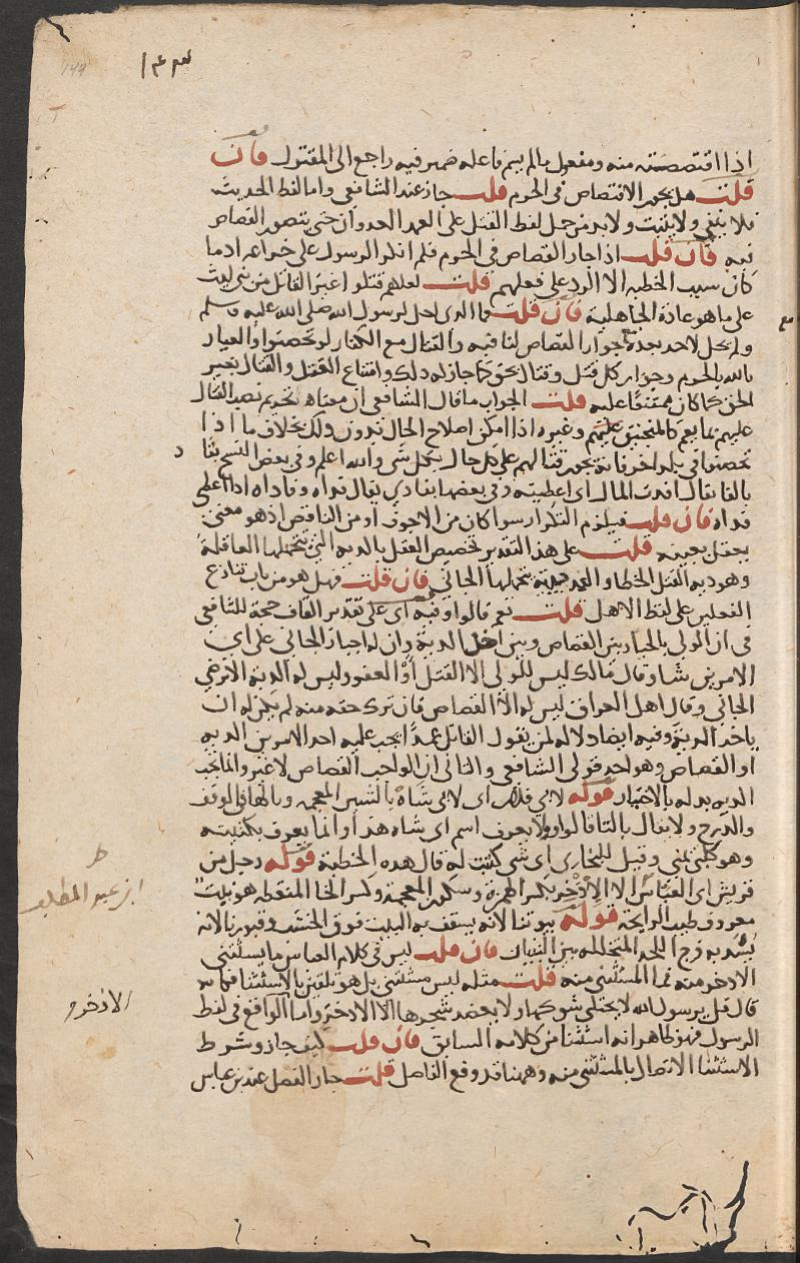 اذا اقتصصته منه ومفعول مالم يسم فاعله ضمير فيه راجع الى المقتول فان
قلت هل يجوز الاقتصاص في الحرم قلت جاز عند الشافعي واما لفظ الحديث
فلا ينفي ولا يثبت ولابد من حمل لفظ القتل على العمد العدوان حتى يتصور القصاص
فيه فان قلت اذا جاز القصاص في الحرم فلم انكر الرسول على خزاعة اذ ما
كان سبب الخطبه الا الرد على فعلهم قلت لعلهم قتلوا غير القاتل من بني ليث
على ما هو عادة الجاهلية فان قلت فما الذي احل لرسول الله صلى الله عليه وسلم
ولم يحل لاحد بعده جواز القصاص لنا فيه والقتال مع الكفار لو تحصنوا والعياذ
بالله بالحرم وجواز كل قتل وقتال بحق كما جاز له ذلك وامتناع القتل والقتال بغير
الحق كما كان ممتنعا عليه قلت الجواب ما قال الشافعي ان معناه تحريم نصب القتال
عليهم بما يعم كالمنجنيق وغيره اذا امكن اصلاح الحال بدون ذلك بخلاف ما اذا
تحصنوا في بلد اخر فانه يجوز قتالهم على كل حال بكل شي والله اعلم وفي بعض النسخ يقاد
بالقا يقال افدت المال اي اعطيته وفي بعضها يفادي يقال فداه وفاداه اذا اعطى
فداه فان قلت فيلزم التكرار سوا كان من الاجوف او من الناقص اذ هو معنى
يعقل بعينه قلت على هذا التقدير تخصيص العقل بالدية التي تتحملها العاقلة
وهو دية القتل الخطا والفدا بدية تحملها الجاني فان قلت فهل هو من باب تنازع
الفعلين على لفظ الاهل قلت نعم قالوا وفيه اي على تقدير القاف حجة للشافعي
في ان الولي بالخيار بين القصاص وبين اخذ الدية وان له اجبار الجاني على اي
الامرين شا وقال مالك ليس للولي الا القتل او العفو وليس له الدية الا برضي
الجاني وقال اهل العراق ليس له الا القصاص فان ترك حقه منه لم يكن له ان
ياخذ الدية وفيه ايضا دلاله لمن يقول القاتل عمدا يجب عليه احد الامرين الديه
او القصاص وهو احد قولي الشافعي والثاني ان الواجب القصاص لا غير وانما يجب
الديه بدله بالاختيار قوله لابي فلان اي لابي شاه بالشين المعجمه وبالها في الوقف
والدرج ولا يقال بالتا قالوا ولا يعرف اسم ابي شاه هذا وانما يعرف بكنيته
وهو كلبي يمني وقيل للبخاري اي شي كتب له قال هذه الخطبة قوله رجل من
قريش اي العباس الا الاذخر بكسر الهمزة وسكون المعجمة وكسر الخا المنقطه هو نبت
معروف طيب الرايحة قوله بيوتنا لانه يسقف به البيت فوق الخشب وقبورنا لانه
يسد به فرج اللحد المتخلله بين اللبنات فان قلت ليس في كلام العباس ما يستثنى
الاذخر منه فما المستثنى منه قلت مثله ليس مستثنى بل هو تلقين بالاستثنا فكانه
قال قل يرسول الله لا يختلى شوكها ولا يعضد شجرها الا الاذخر واما الواقع في لفظ
الرسول فهو ظاهر انه استثنا من كلامه السابق فان قلت كيف جاز وشرط
الاستثنا الاتصال بالمستثنى منه وههنا قد وقع الفاصل قلت جاز الفصل عند ابن عباس
ابن عبد المطلب
الاذخر